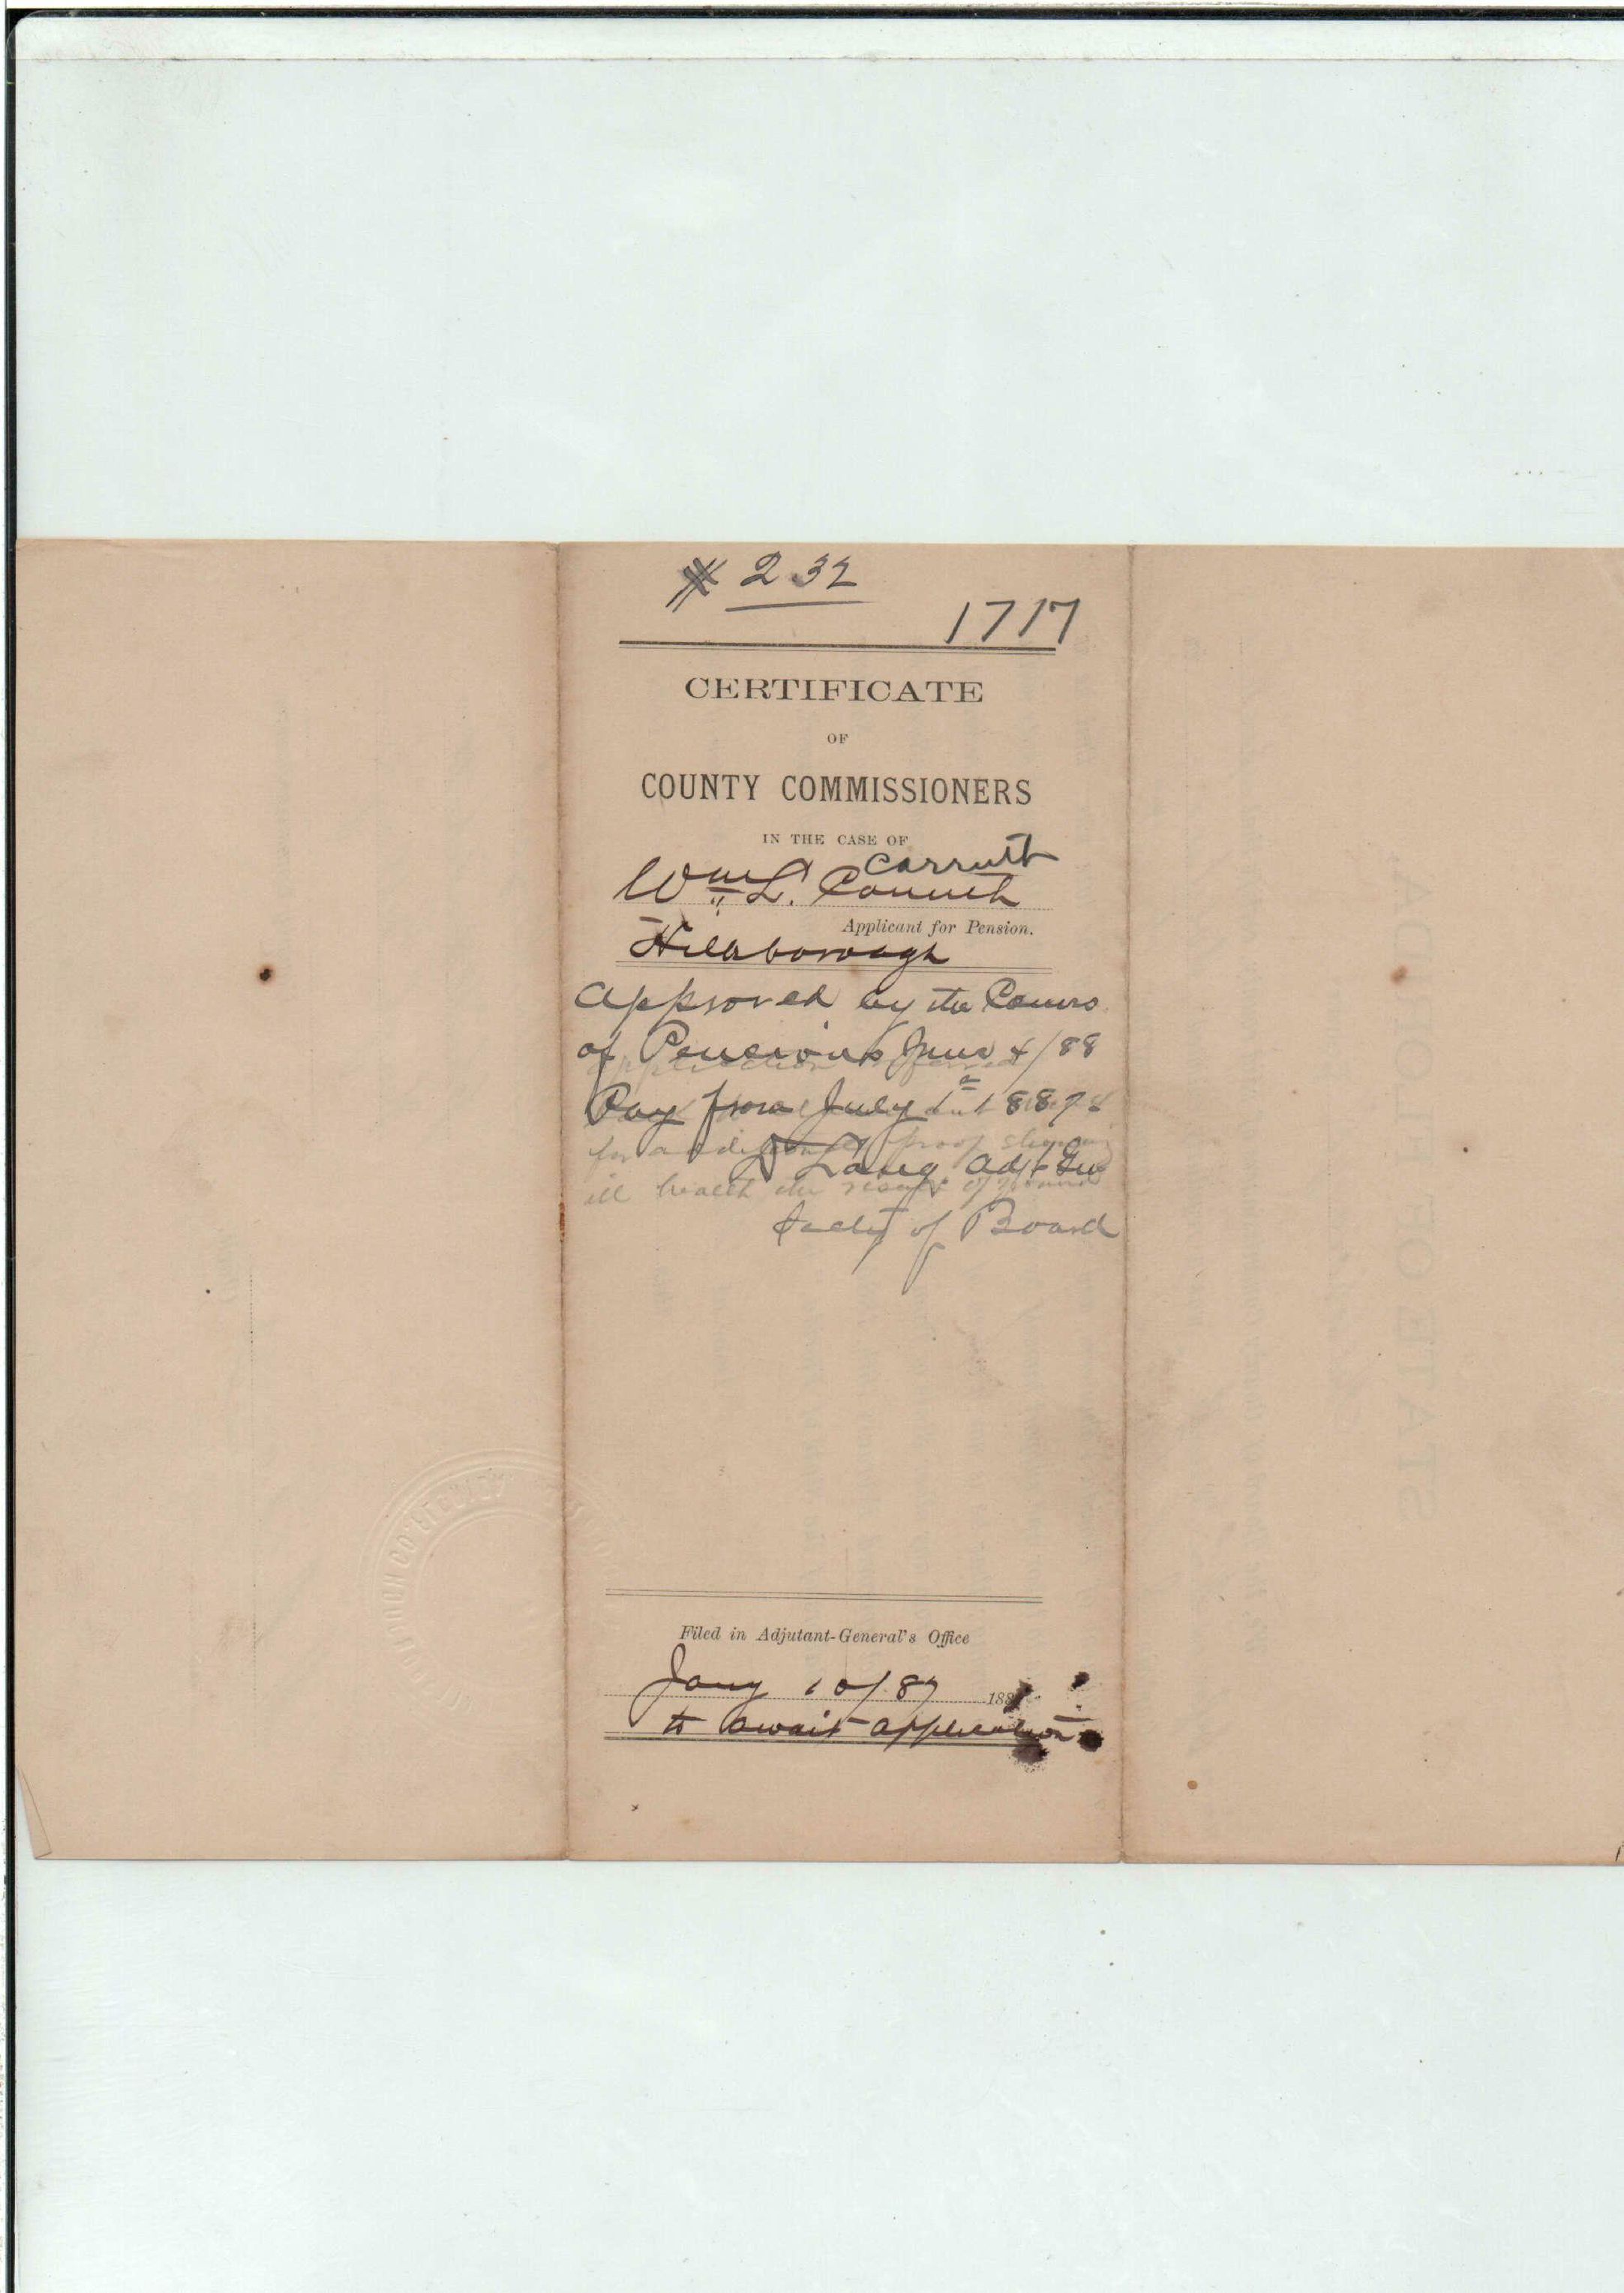 # 232
1717
CERTIFICATE
OF
COUNTY COMMISSIONERS
IN THE CASE OF
Carruth
Wm L. Carruth
Applicant for Pension.
Hillsborough
Approved by the Comrs
of Pensions June 4/88
Pay from July 1st
for additional proof showing
D Lang Adjt Gen
ill health the result of wound
Secty of Board
Filed in Adjutant-General's Office
Jany 10/87 188
to await application